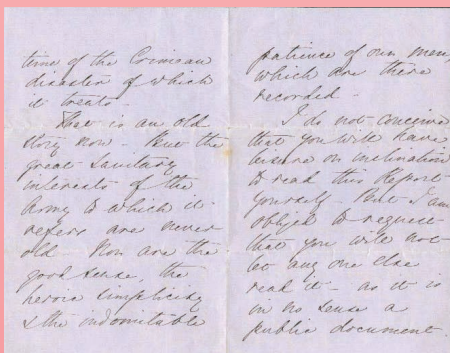 time of the Crimean
disaster of which
it treats -
That is an old
story now - But the
great Sanitary
interests of the
Army to which it
refers are never
old. Nor are the
good sense the
heroic simplicity
& the indomitable
patience of our men,
which are there
recorded -
I do not conceive
that you will have
leisure or inclination
to read this Report
yourself - But I am
obliged to request
that you will not
let any one else
read it - as it is
in no sense a
public document.